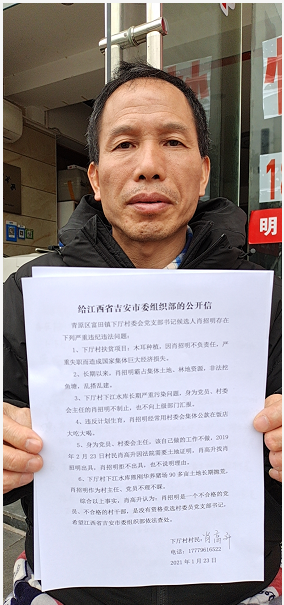 明
给江西省吉安市委组织部的公开信
青原区富田镇下厅村委会党支部书记候选人肖招明存在
下列严重违纪违法问题：
1、下厅村扶贫项目：木耳种植，因肖招明不负责任，严
重失职而造成国家集体巨大经济损失。
2、长期以来，肖招明霸占集体土地、林地资源，非法挖
鱼塘，乱搭乱建。
3、下厅村江水库长期严重污染问题，身为党员、村委会
会主任的肖招明不制止，也不向上级部门汇报。
4、违反计划生育，肖招明经常用村委会集体公款在饭店
大吃大喝。
5、身为党员、村委会主任，该自己做的工作不做，2019
年 2 月 23 日村民肖高升因法院需要土地证明，肖高升找肖
招明出具，肖招明拒不出具，也不说明理由。
6、下厅村下江水库熊刚华养猪场 90 多亩土地长期撂荒，
肖招明作为村主任、党员不规不顾。
综合以上事实，肖高升认为：肖招明是一个不合格的党
员、不合格的村干部，是没有资格竞选村委员党支部书记，
希望江西省吉安市委组织部依法查处。
下厅村村民：肖高升
电话：17779616522
2021 年 1 月 23 日